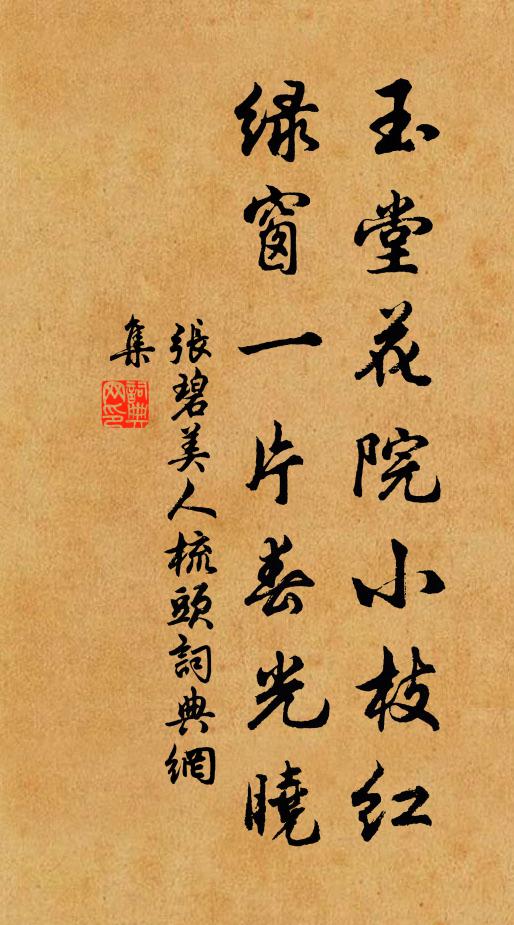 玉堂花院小枝红
绿窗一片春光曉
張碧美人梳頭詞典網
集
詞典网印